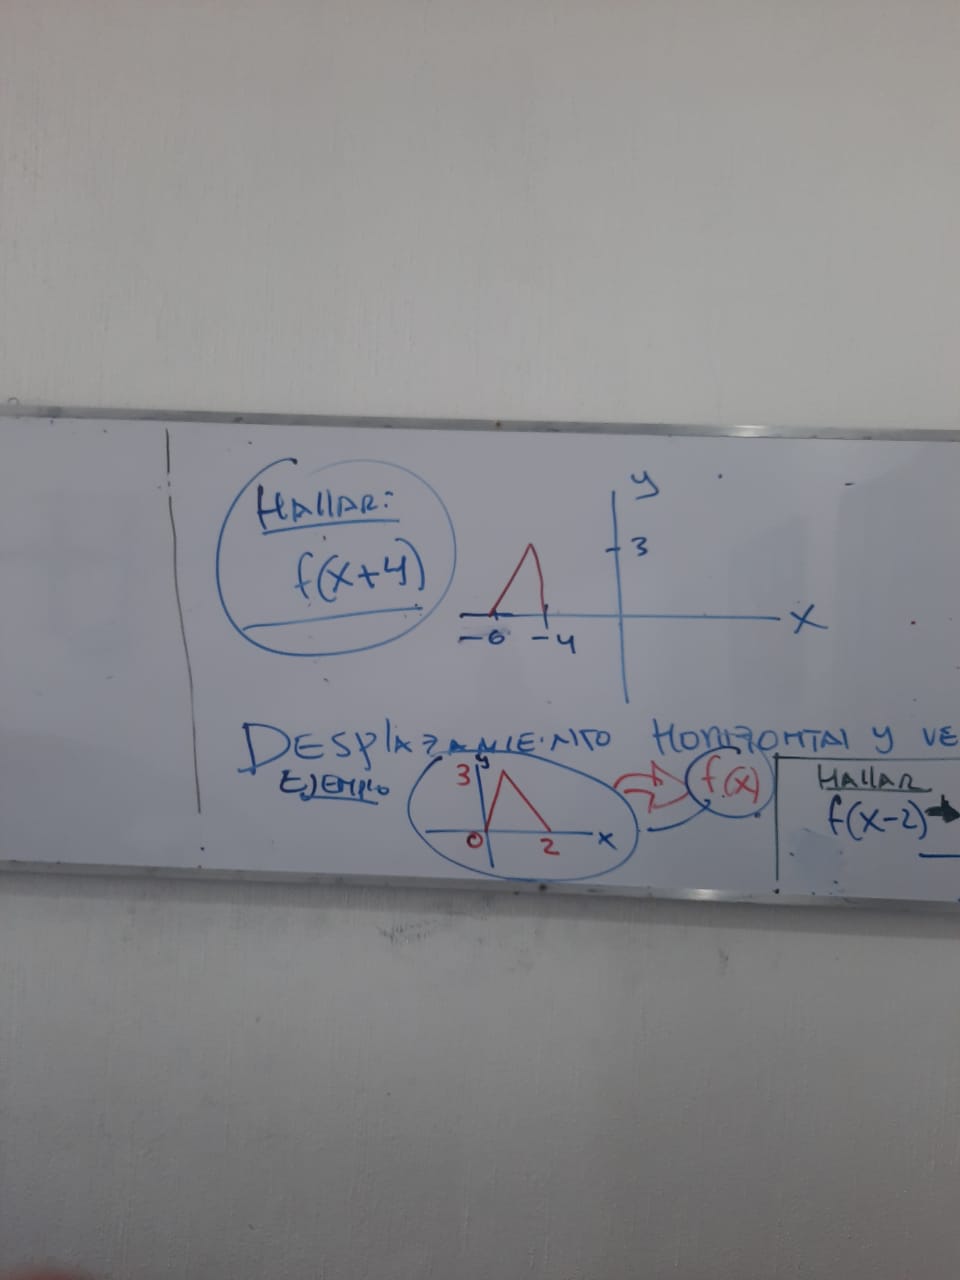 HALLAR:
f(x+4)
y
3
-6 -4
x
DESPLAZAMIENTO HORIZONTAL Y VE
EJEMPLO
3 y
0 2 x
f(x)
HALLAR
f(x-2)